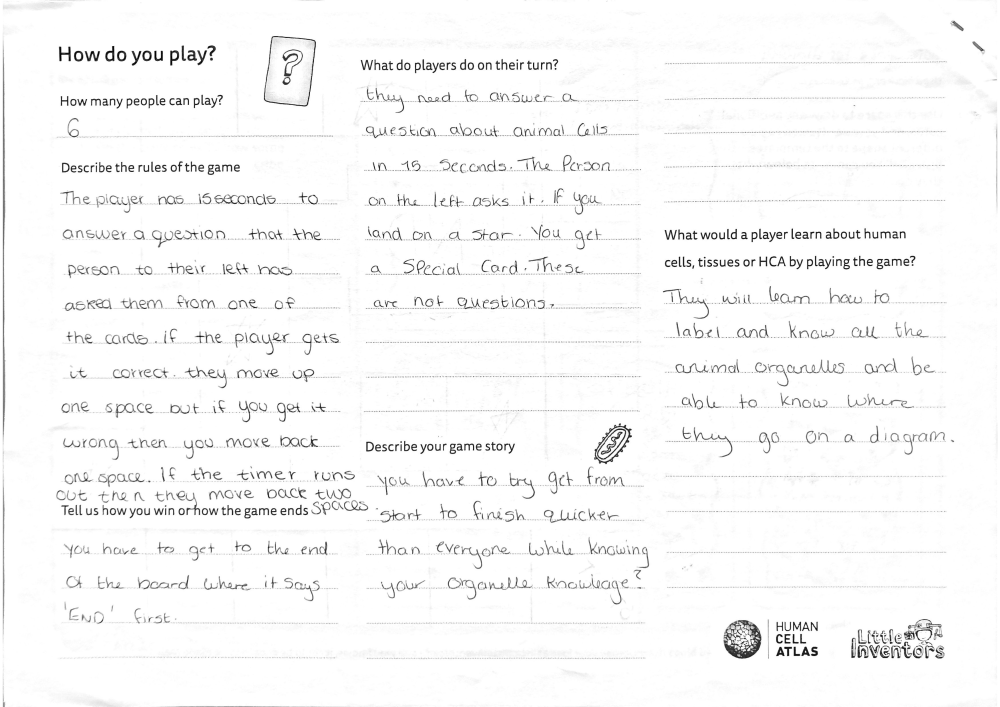 How do you play?
?
How many people can play?
6
Describe the rules of the game
The player has 15 seconds to
answer a question that the
person to their left has
asked them from one of
the cards. if the player gets
it correct. they move up
one space but if you get it
wrong then you move back
one space. If the timer runs
out then they move back two
spaces
Tell us how you win or how the game ends
you have to get to the end
Of the board where it says
'END' first.
What do players do on their turn?
they need to answer a
question about animal Cells
in 15 Seconds. The Person
on the left asks it. If you
land on a star. You get
a Special Card. These
are not questions.
Describe your game story
you have to try get from
start to finish quicker
than everyone while knowing
your organelle knowleage?
What would a player learn about human
cells, tissues or HCA by playing the game?
They will learn how to
label and know all the
animal organelles and be
able to know where
they go on a diagram.
HUMAN
CELL
ATLAS
Little
Inventors